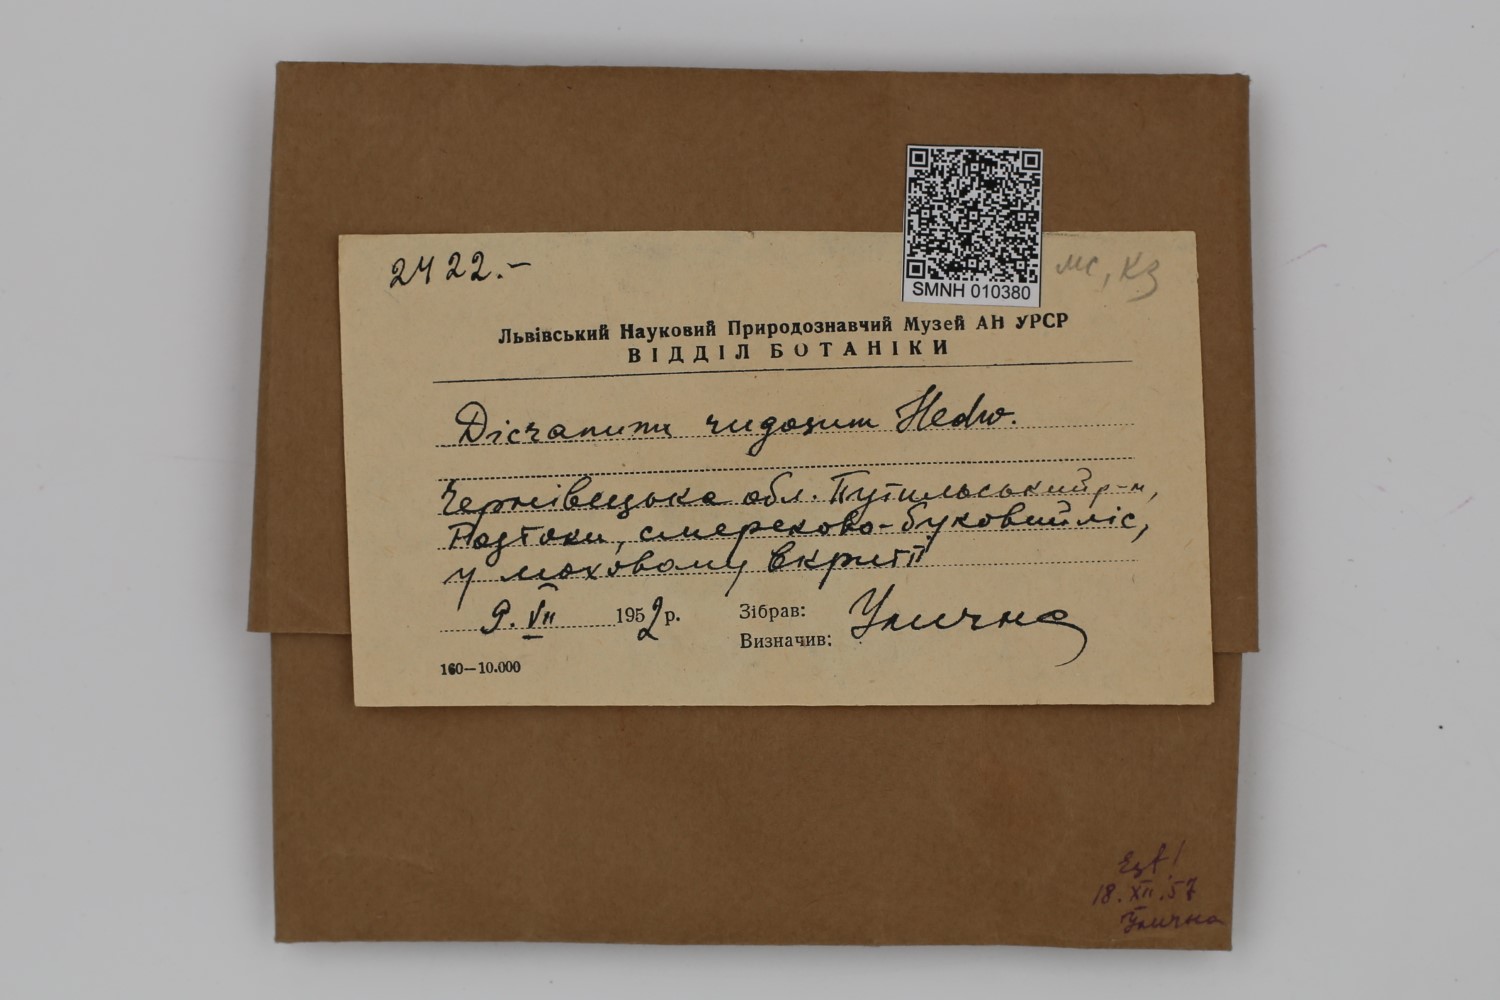 2422.-
SMNH 010380
мс, кз
Львівський Науковий Природознавчий Музей АН УРСР
ВІДДІЛ БОТАНІКИ
Dicranum rugosum Hedw.
Чернівецька обл. Путильський р-н,
Розтоки, смереково-буковий ліс,
у моховому вкритті
9. VII 1952 р. Зібрав: Улична
Визначив:
160—10.000
18.XII.57
Улична